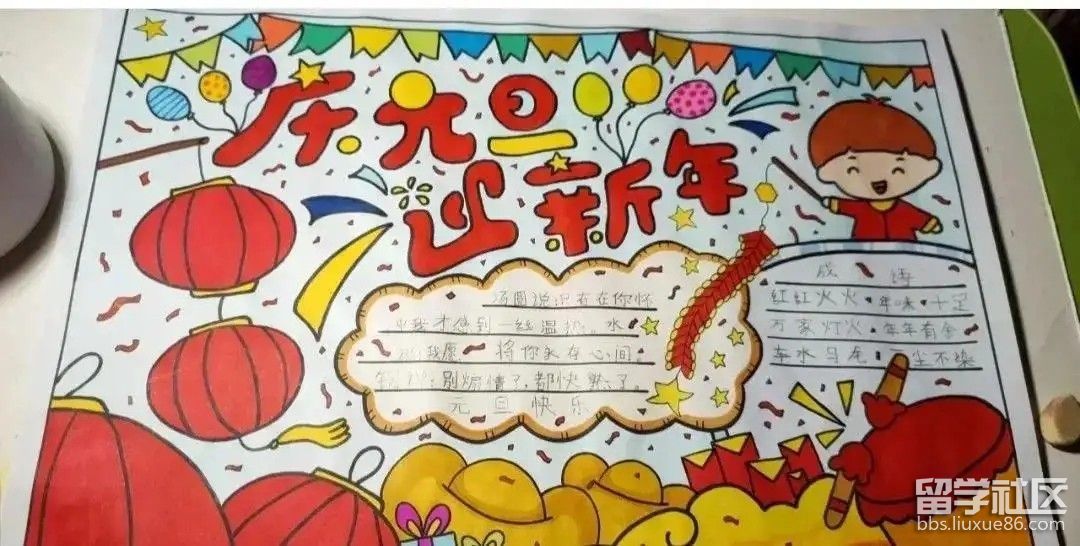 庆元旦
迎新年
汤圆说：只有在你怀
中我才感到一丝温热。水
饺说：我愿 将你夹在心间。
锅说：别煽情了，都快熟了。
元旦快乐
成语
红红火火 年味十足
万家灯火 年年有余
车水马龙 一尘不染
留学社区
bbs.liuxue86.com